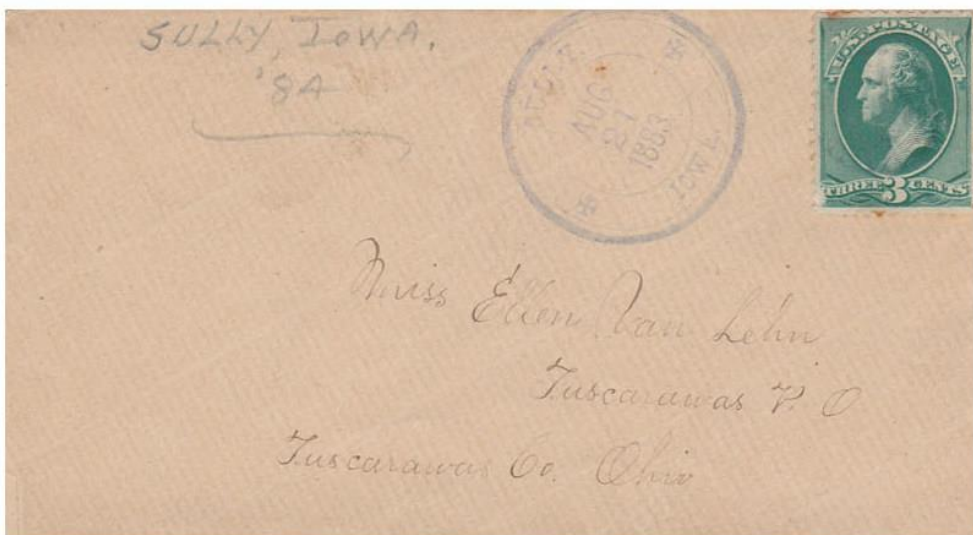 SULLY, IOWA.
'84
AUG
27
1883
IOWA
U.S. POSTAGE
THREE 3 CENTS
Miss Ellen Van Lehn
Tuscarawas P. O
Tuscarawas Co. Ohio